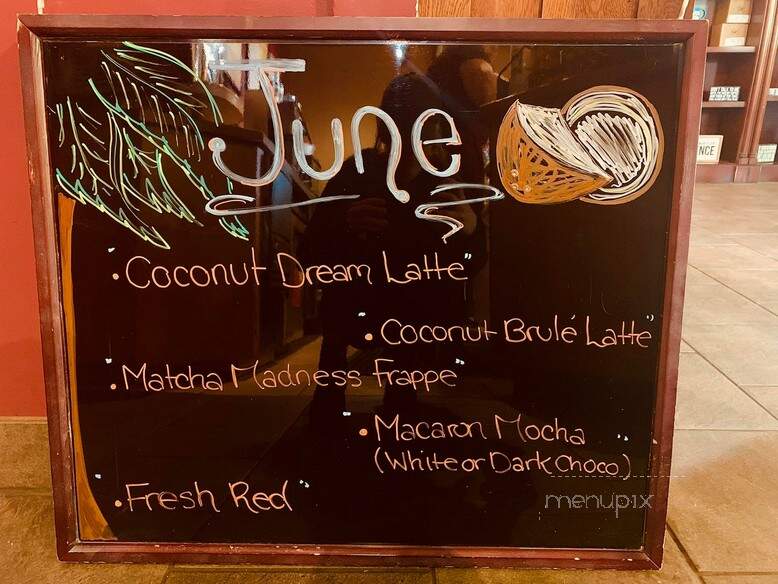 June
• "Coconut Dream Latte"
• "Coconut Brulé Latte"
• "Matcha Madness Frappe"
• "Macaron Mocha"
(White or Dark Choco)
• "Fresh Red"
menupix
NCE